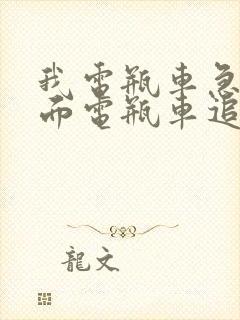 我電瓶車急
而電瓶車追
龍文